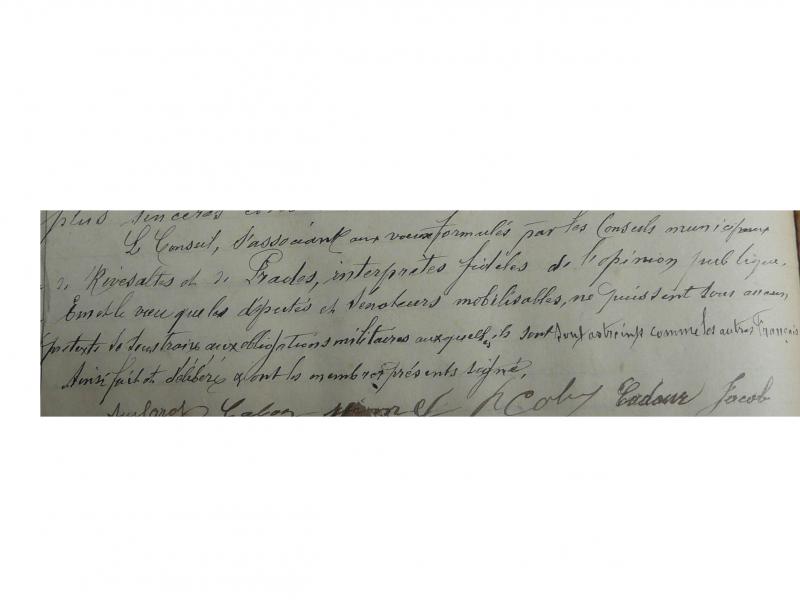 plus sincères
Le Conseil, s'associant aux vœux formulés par les Conseils municipaux
de Rivesaltes et de Prades, interprètes fidèles de l'opinion publique,
Emet le vœu que les députés et sénateurs mobilisables, ne puissent sous aucun
prétexte se soustraire aux obligations militaires auxquelles ils sont tous astreints comme les autres Français
Ainsi fait et délibéré & ont les membres présents signé,
Cadour Jacob